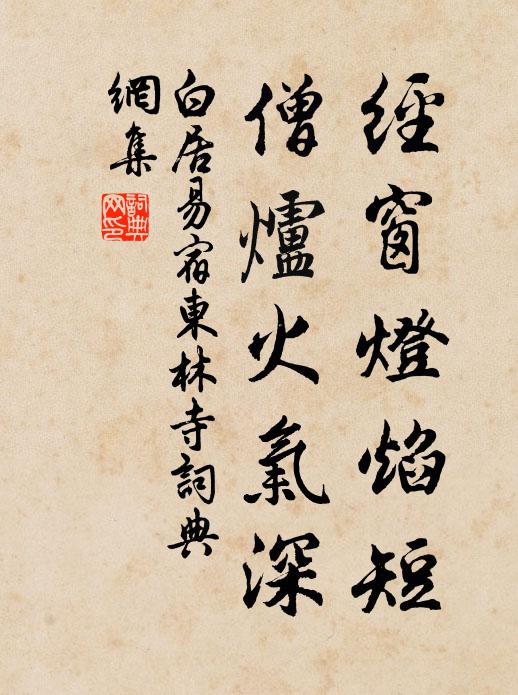 經窗燈焰短
僧爐火氣深
白居易宿東林寺詞典
網集
詞典
网印